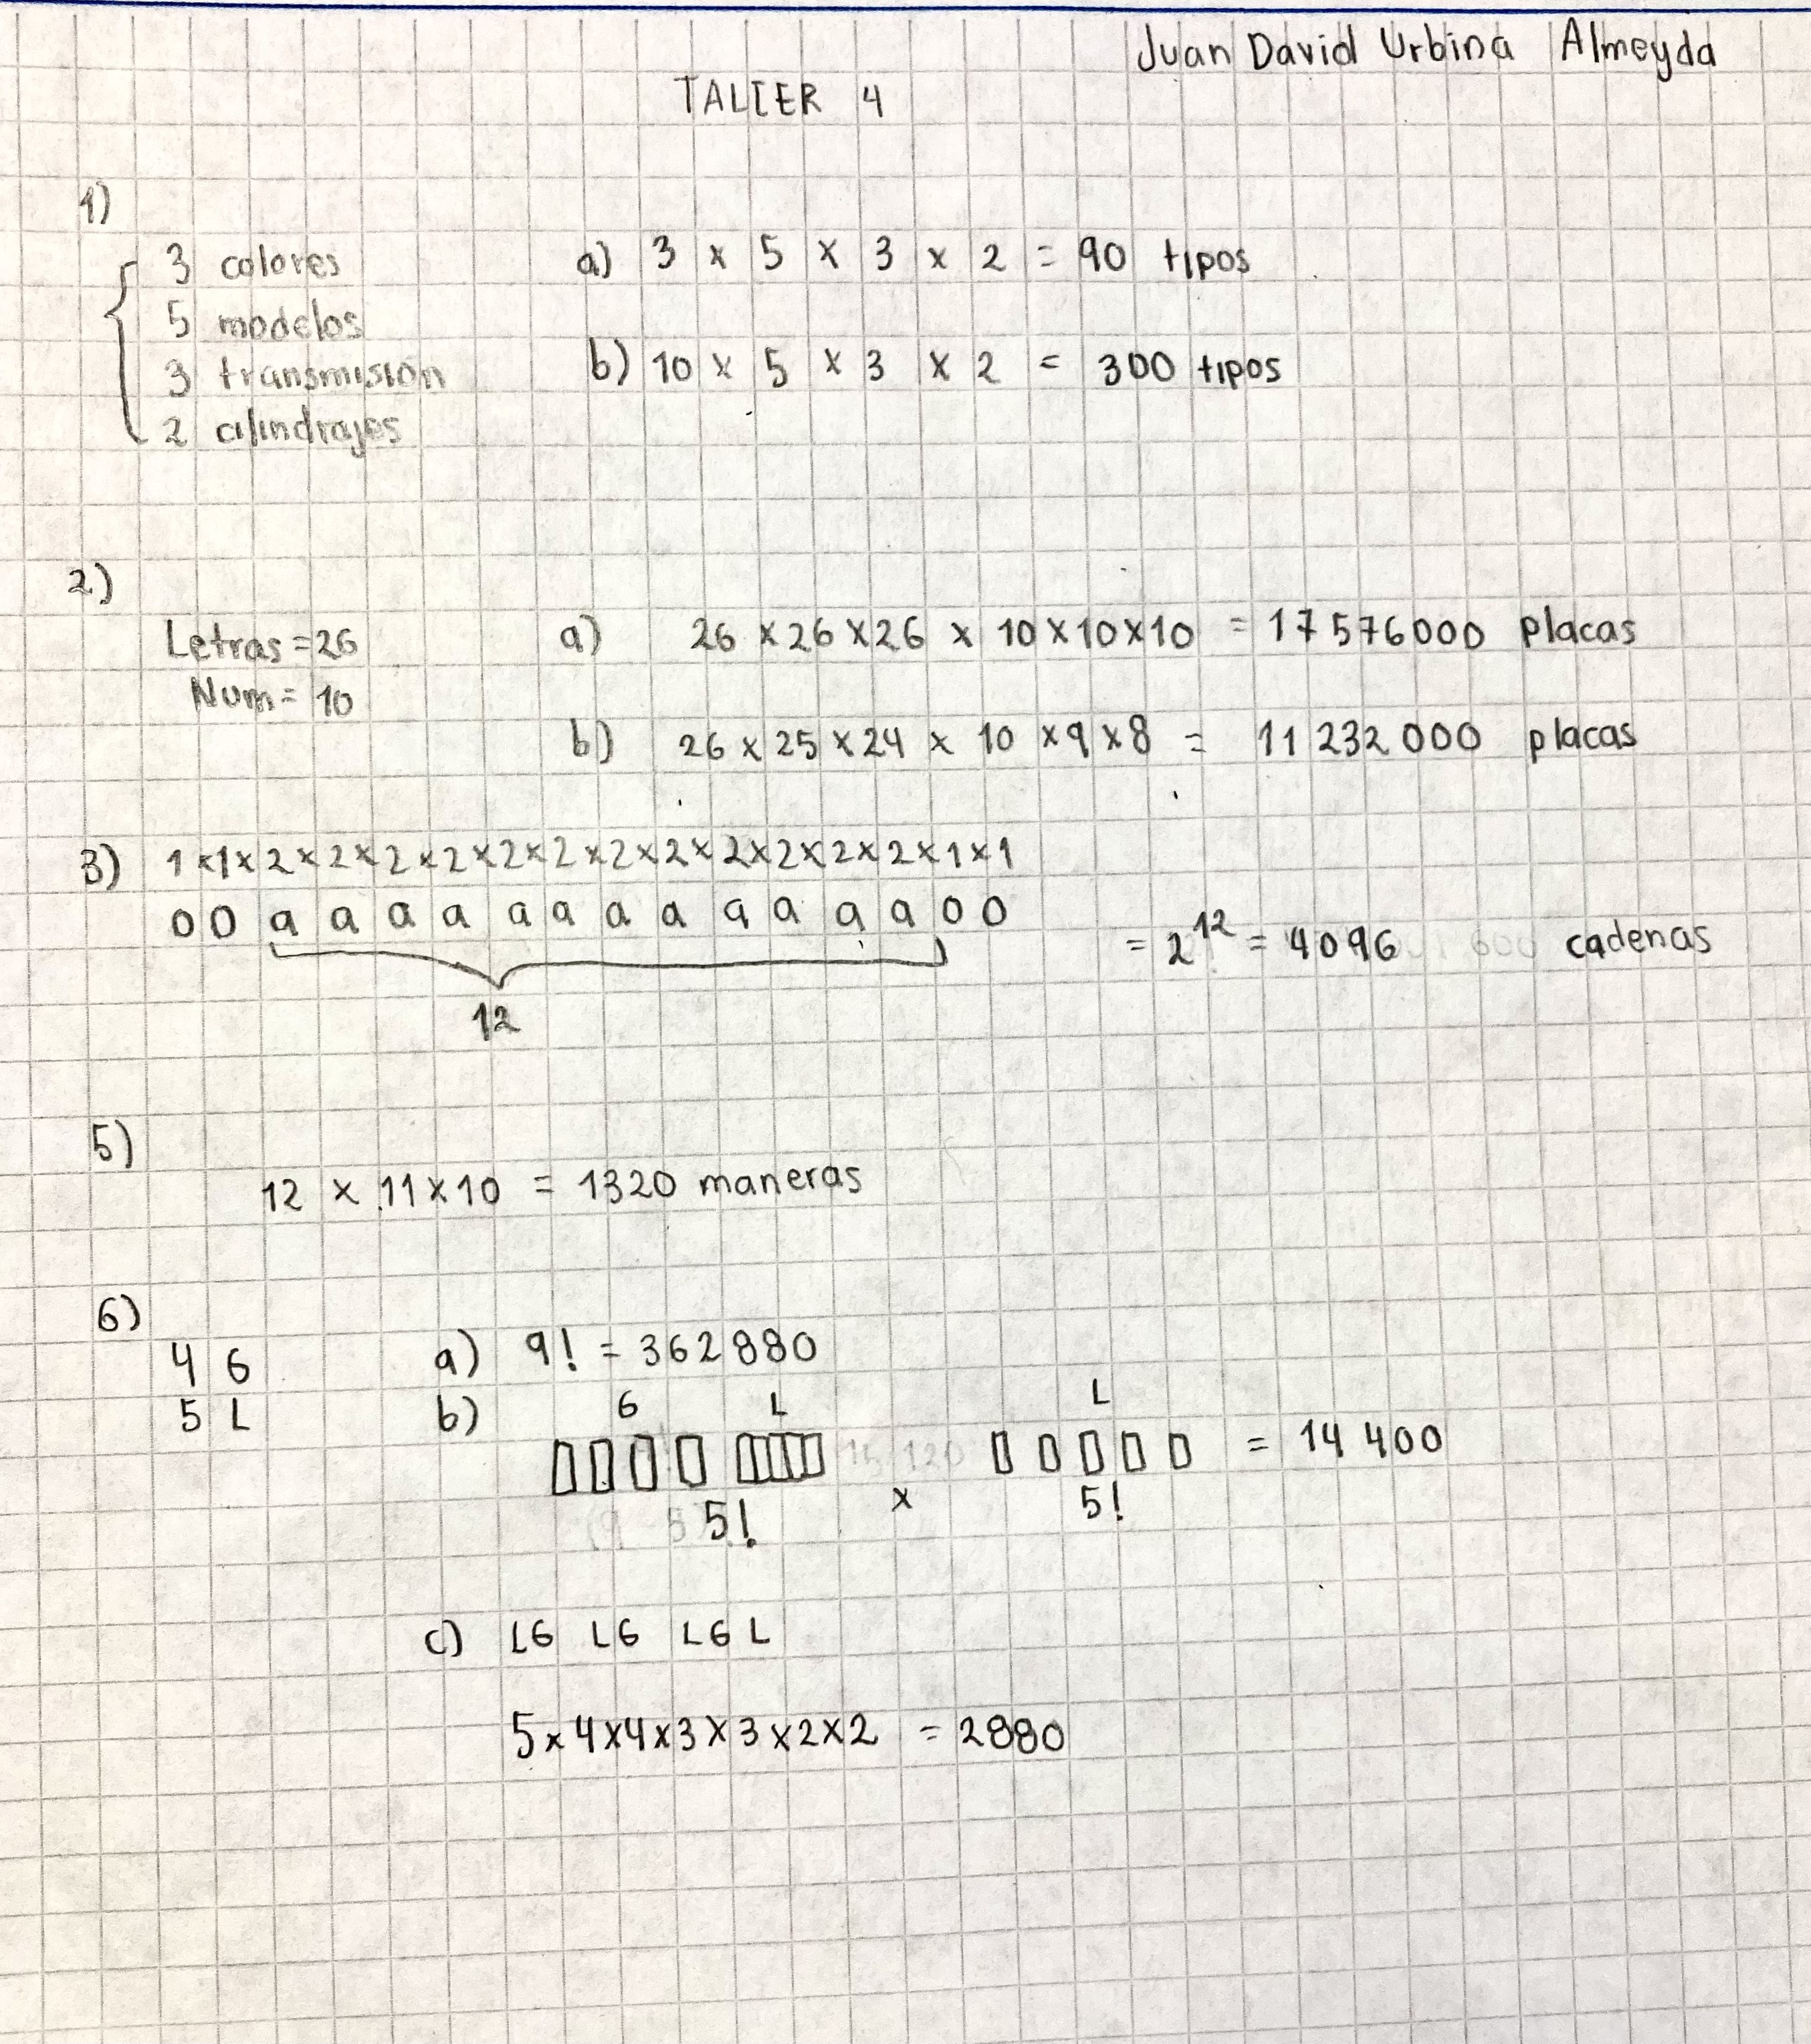 Juan David Urbina Almeyda
TALLER 4
1)
3 colores
5 modelos
3 transmisión
2 cilindrajes
a) 3 x 5 x 3 x 2 = 90 tipos
b) 10 x 5 x 3 x 2 = 300 tipos
2)
Letras = 26
Num = 10
a) 26 x 26 x 26 x 10 x 10 x 10 = 17576000 placas
b) 26 x 25 x 24 x 10 x 9 x 8 = 11232000 placas
3) 1 x 1 x 2 x 2 x 2 x 2 x 2 x 2 x 2 x 2 x 2 x 2 x 2 x 2 x 1 x 1
0 0 a a a a a a a a a a a a 0 0
12
= 2^12 = 4096 cadenas
5)
12 x 11 x 10 = 1320 maneras
6)
4 G
5 L
a) 9! = 362880
b) G L L
= 14400
5! x 5!
c) LG LG LG L
5 x 4 x 4 x 3 x 3 x 2 x 2 = 2880